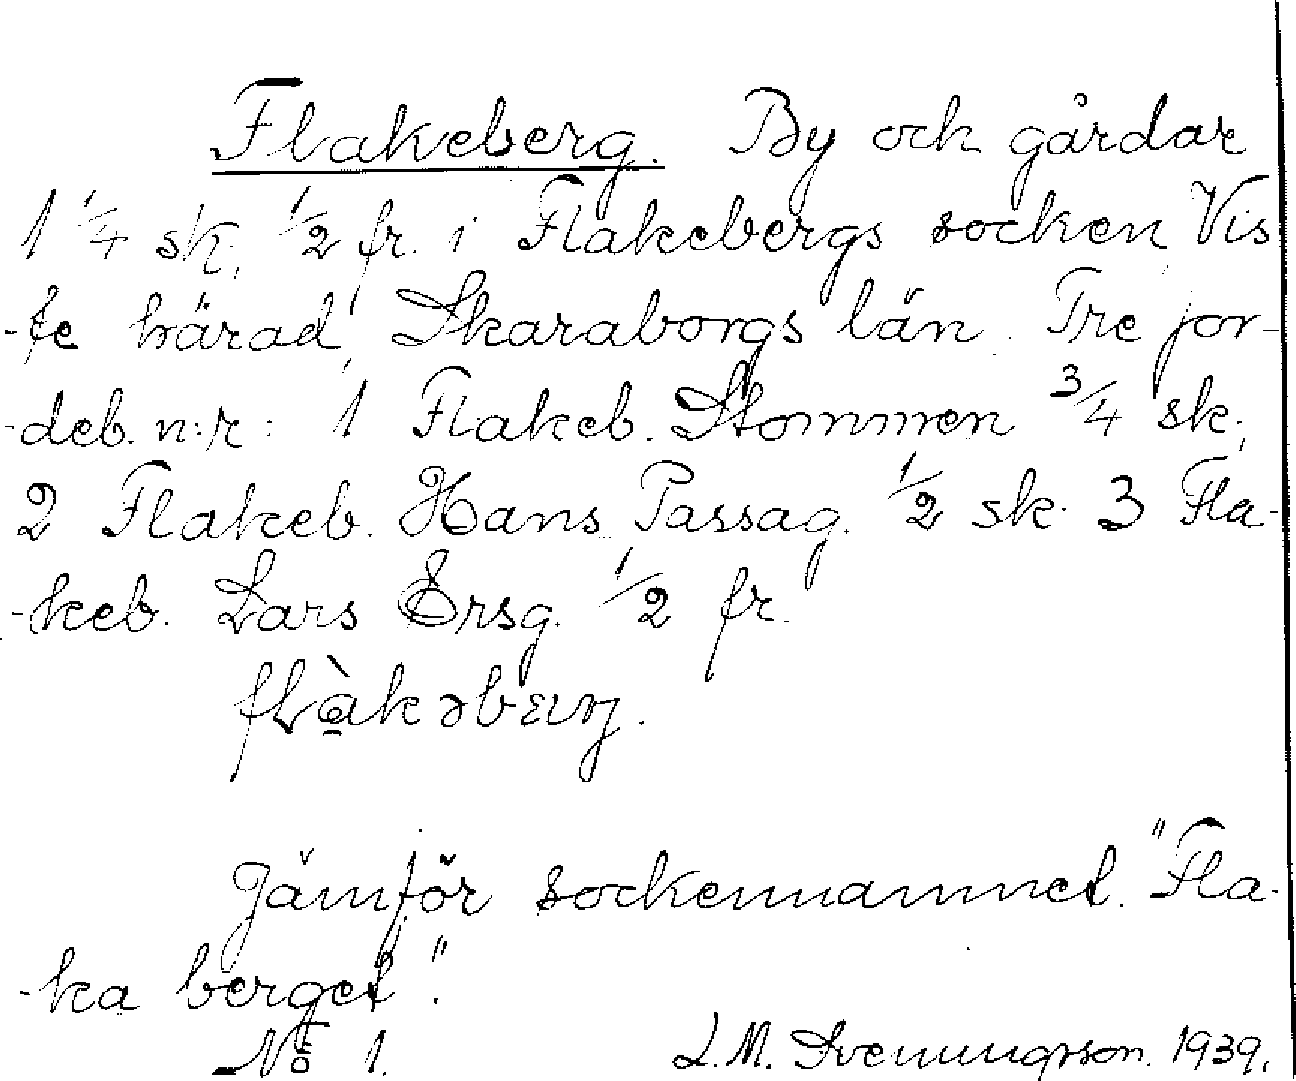 Flakeberg. By och gårdar
1 1/4 sk, 1/2 fr. i Flakebergs socken, Vis
-te härad, Skaraborgs län. Tre jor-
-deb. n:r: 1 Flakeb. Stommen 3/4 sk.,
2 Flakeb. Hans Passag. 1/2 sk. 3 Fla-
-keb. Lars Ersg. 1/2 fr.
Jämför sockennamnet. "Fla-
-ka berget".
No 1. L.M. Svenungsson. 1939.